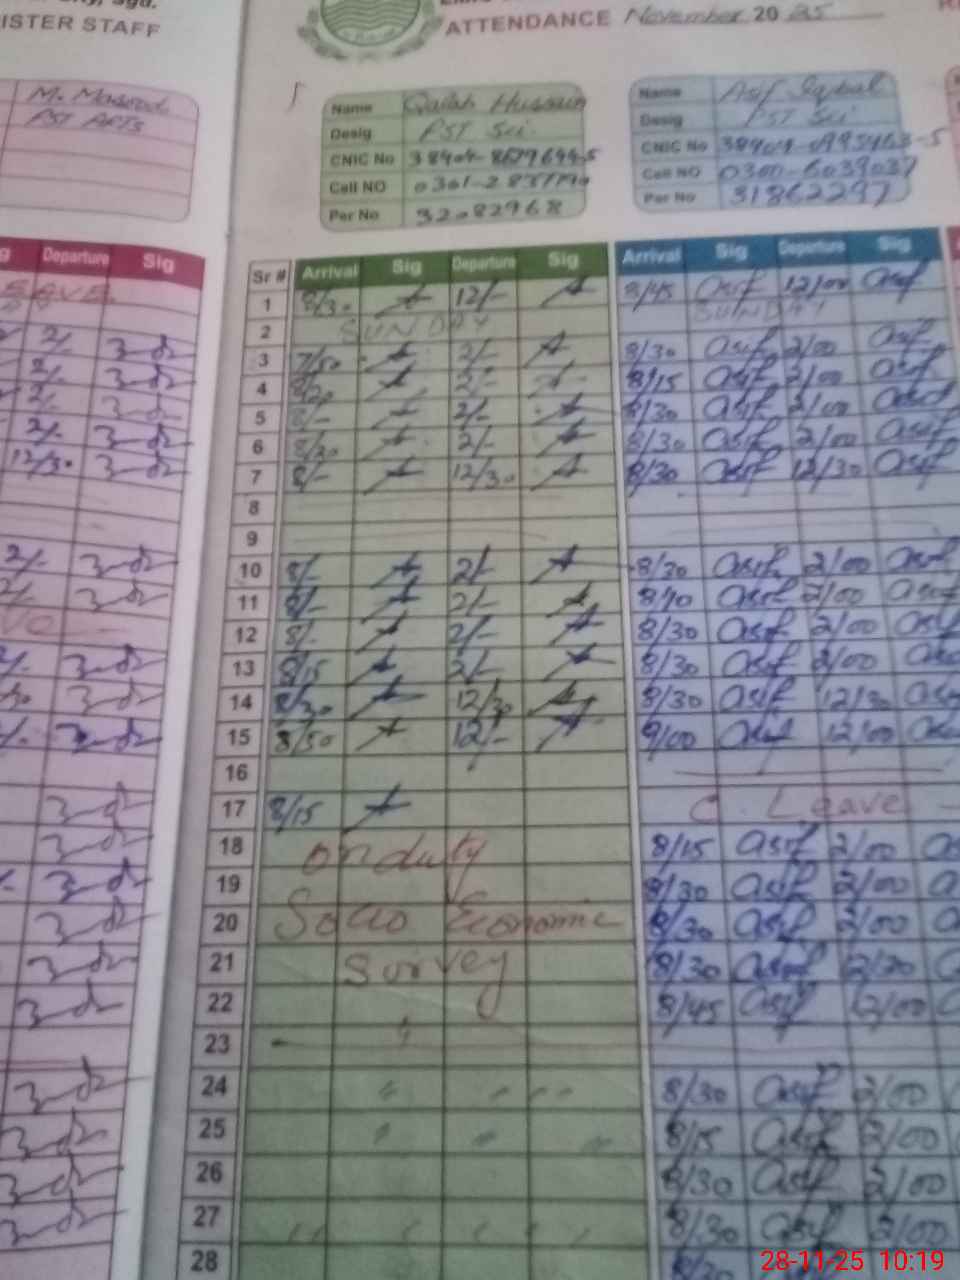 ISTER STAFF
ATTENDANCE November 2025
M. Masood
PST ARTS
Name Qailab Hussain
Desig PST Sci
CNIC No
Cell NO
Per No 32082968
Name Asif Iqbal
Desig PST Sci
CNIC No
Cell NO 0300-6039037
Per No 31862297
Departure Sig
Sr # Arrival Sig Departure Sig Arrival Sig Departure Sig
1 8/30 12/- 8/45 Asif 12/00 Asif
2 SUNDAY SUNDAY
2/- 3 7/50 2/- 8/30 Asif 2/00 Asif
2/- 4 8/20 2/- 8/15 Asif 2/00 Asif
2/- 5 8/- 2/- 8/30 Asif 2/00 Asif
2/- 6 8/30 2/- 8/30 Asif 2/00 Asif
12/30 7 8/- 12/30 8/30 Asif 12/30 Asif
8
9
2/- 10 8/- 2/- 8/30 Asif 2/00 Asif
11 8/- 2/- 8/10 Asif 2/00 Asif
12 8/- 2/- 8/30 Asif 2/00 Asif
13 8/15 2/- 8/30 Asif 2/00
14 8/30 12/30 8/30 Asif 12/30
15 8/30 12/- 9/00 Asif 12/00
16
17 8/15 C. Leave
18 on duty 8/15 Asif 2/00
19 8/30 Asif 2/00
20 Socio Economic 8/30 Asif 2/00
21 Survey 8/30 Asif
22 8/45 Asif 12/00
23
24 " " " 8/30 Asif 2/00
25 " " " 8/15 Asif 2/00
26 8/30 Asif 2/00
27 " " " " 8/30 Asif 2/00
28
28-11-25 10:19